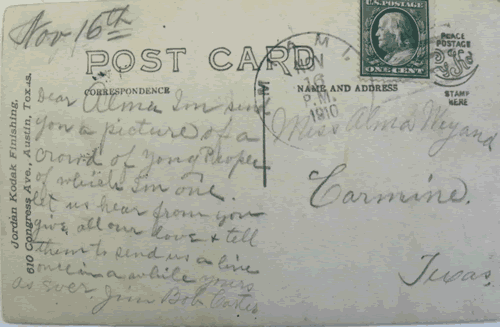 Nov 16th
U.S. POSTAGE
ONE CENT
POST CARD
MIAMI,
NOV
16
P.M.
1910
PLACE
POSTAGE
STAMP
HERE
CORRESPONDENCE
NAME AND ADDRESS
Dear Alma Im send
you a picture of a
crowd of yong People
of which Im one.
let us hear from you
give all our love & tell
them to send us a line
once in a while yours
as ever. Jim Bob
Miss Alma
Carmine.
Texas.
Jordan Kodak Finishing,
610 Congress Ave., Austin, Texas.